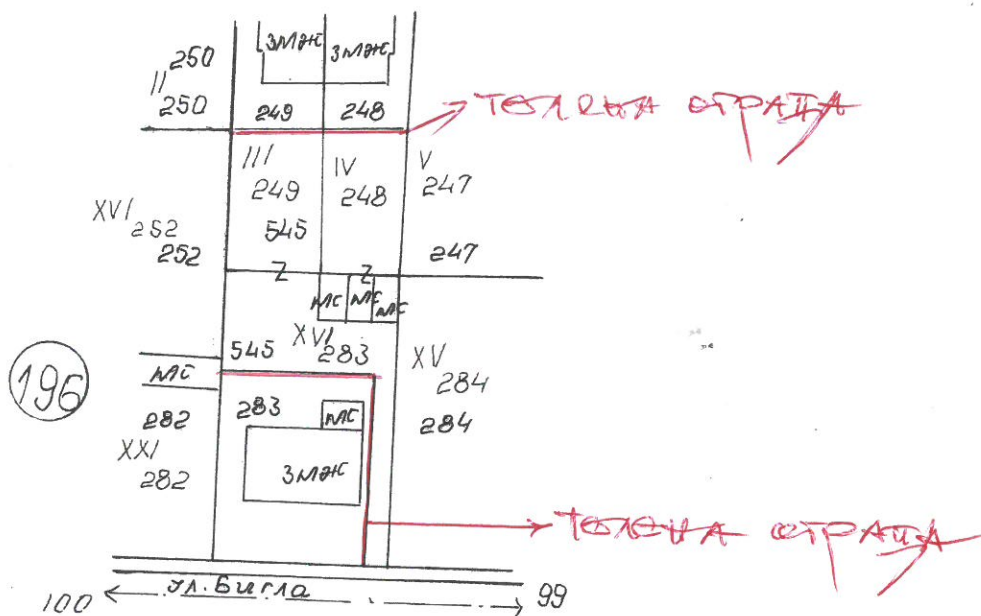 3МЖ 3МЖ
250
II
250
249 248
ТЕЛЕНА ОГРАДА
III IV V
249 248 247
545
XVI
252
252
247
Z Z
МС МС МС
XVI
545 283
XV
284
196
МС
282
283
МС
284
XXI
282
3МЖ
ТЕЛЕНА ОГРАДА
ул. Бигла
100 99